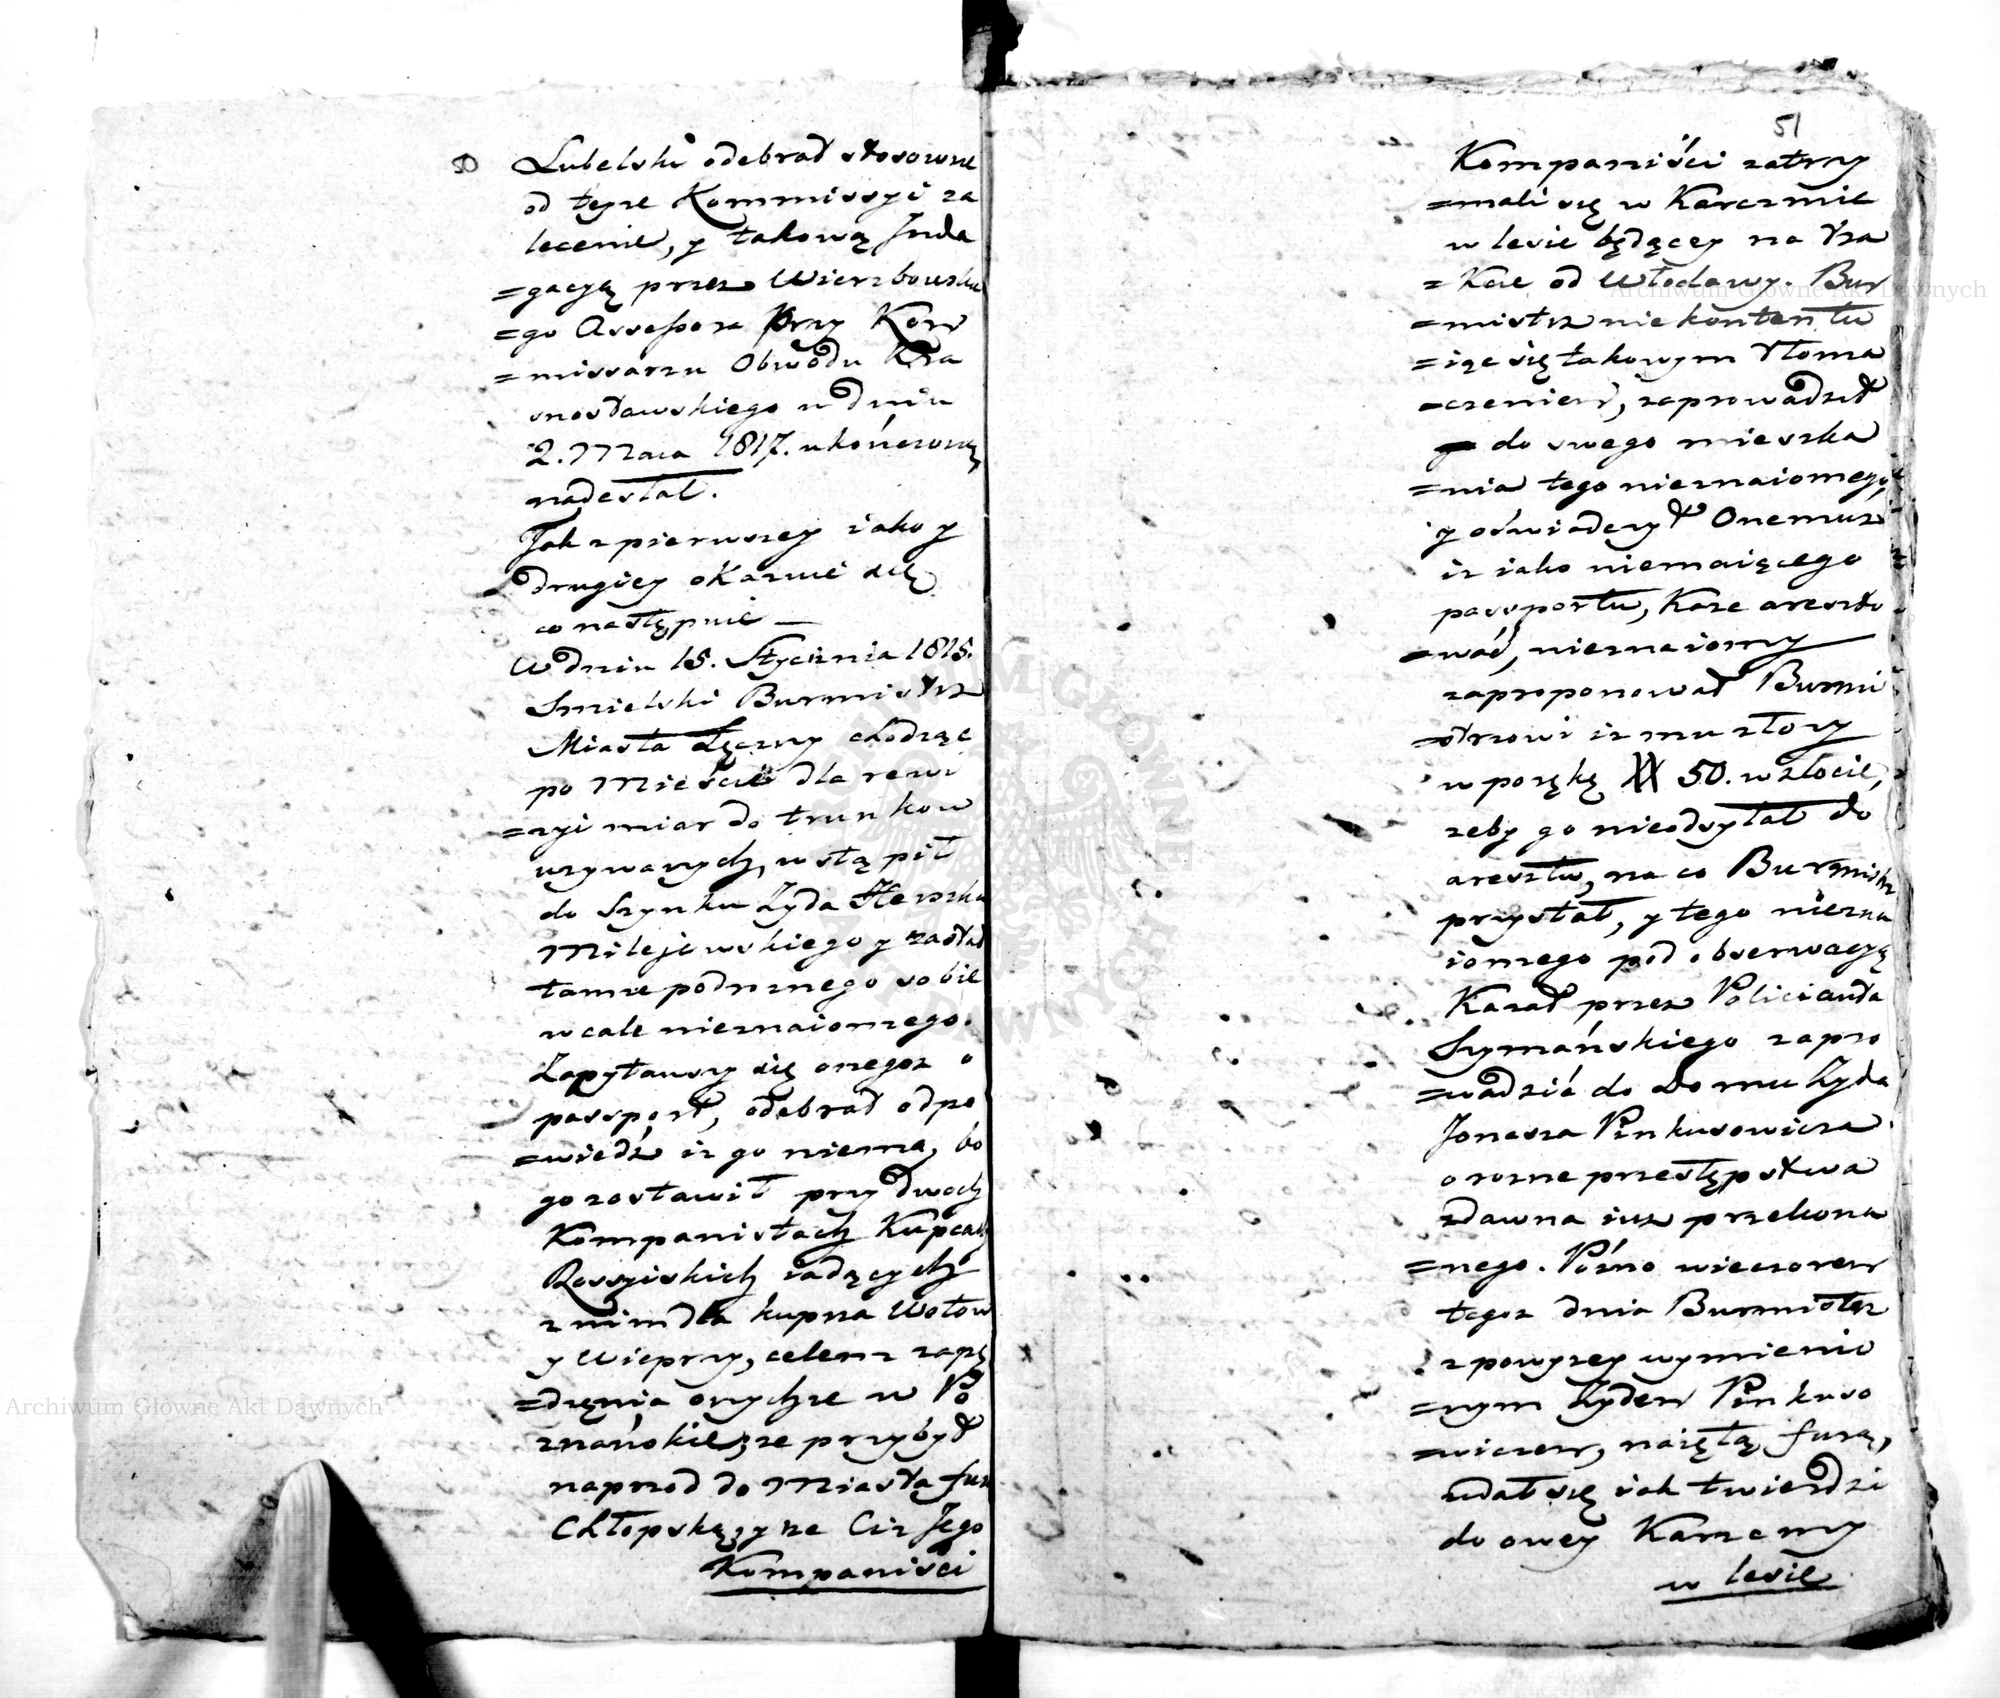 50
Lubelski odebrał stosowne
od teyże Kommissyi za
lecenie, y takową Inda
=gacyą przez Wierzbowskie
=go Assessora przy Kom
=missarzu Obwodu Kra
snostawskiego w dniu
2. Maia 1817. ukończoną,
nadesłał.
Jak z pierwszey iako y
drugiey okazuie się
co następuie —
W dniu 15. Stycznia 1815.
Smielski Burmistrz
Miasta Łęczny chodząc
po Mieście dla rewi
=zyi miar do trunkow
używanych, wstąpił
do Szynku Żyda Herszka
Milejowskiego y zastał
tamże podrożnego sobie
wcale nieznaiomego.
Zapytawszy się onegoż o
passport, odebrał odpo
=wiedź iż go niema, bo
go zostawił przy dwoch
Kompanistach Kupcach
Rossyiskich iadących
z nim dla kupna Wołow
y Wieprzy, celem zapę
=dzenia onychże w Po
znańskie, że przybył
naprzod do Miasta furą
Chłopską, y że Ciż Jego
Kompaniści
51
Kompaniści zatrzy
=mali się w Karczmie
w lesie będącey na Tra
=kcie od Włodawy. Bur
=mistrz nie kontentu
=iąc się takowym tłoma
=czeniem, zaprowadził
do swego mieszka
=nia tego nieznaiomego,
y oświadczył Onemuż
iż iako niemaiącego
passportu, Każe areszto
=wać, nieznaiomy
zaproponował Burmi
=strzowi iż mu złoży
w porękę # 50. w złocie,
żeby go nieodsyłał do
aresztu, na co Burmistrz
przystał, y tego niezna
iomego pod obserwacyą
Kazał przez Policianta
Szymańskiego zapro
=wadzić do Domu Żyda
Jonasza Pinkusowicza
o rozne przestępstwa
zdawna iuż przekona
=nego. Pózno wieczorem
tegoż dnia Burmistrz
z powyżey wymienio
=nym Żydem Pinkuso
=wiczem, naiętą furą,
udał się iak twierdzi
do owey Karczmy
w lesie
Archiwum Główne Akt Dawnych
Archiwum Główne Akt Dawnych
ARCHIWUM GŁÓWNE AKT DAWNYCH